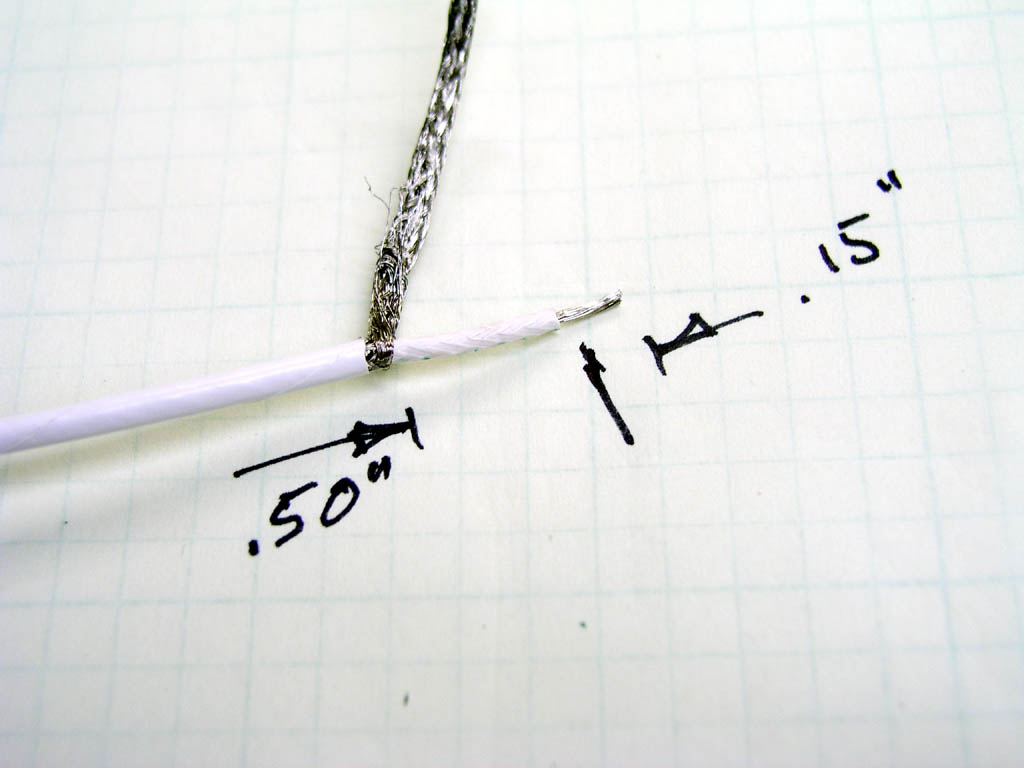 .15"
.50"